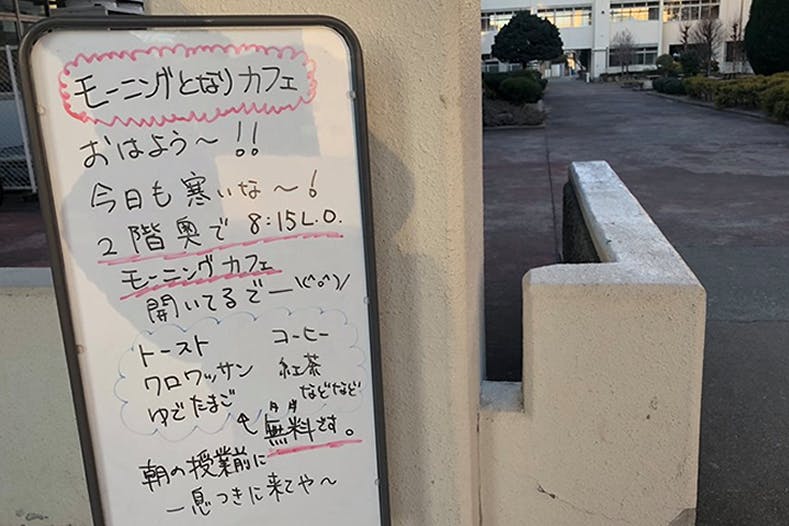 モーニングとなりカフェ
おはよう〜!!
今日も寒いな〜!
2階奥で 8:15L.O.
モーニングカフェ
開いてるでー\(^o^)/
トースト コーヒー
クロワッサン 紅茶
ゆでたまご などなど
↑無料です。
朝の授業前に
一息つきに来てや〜